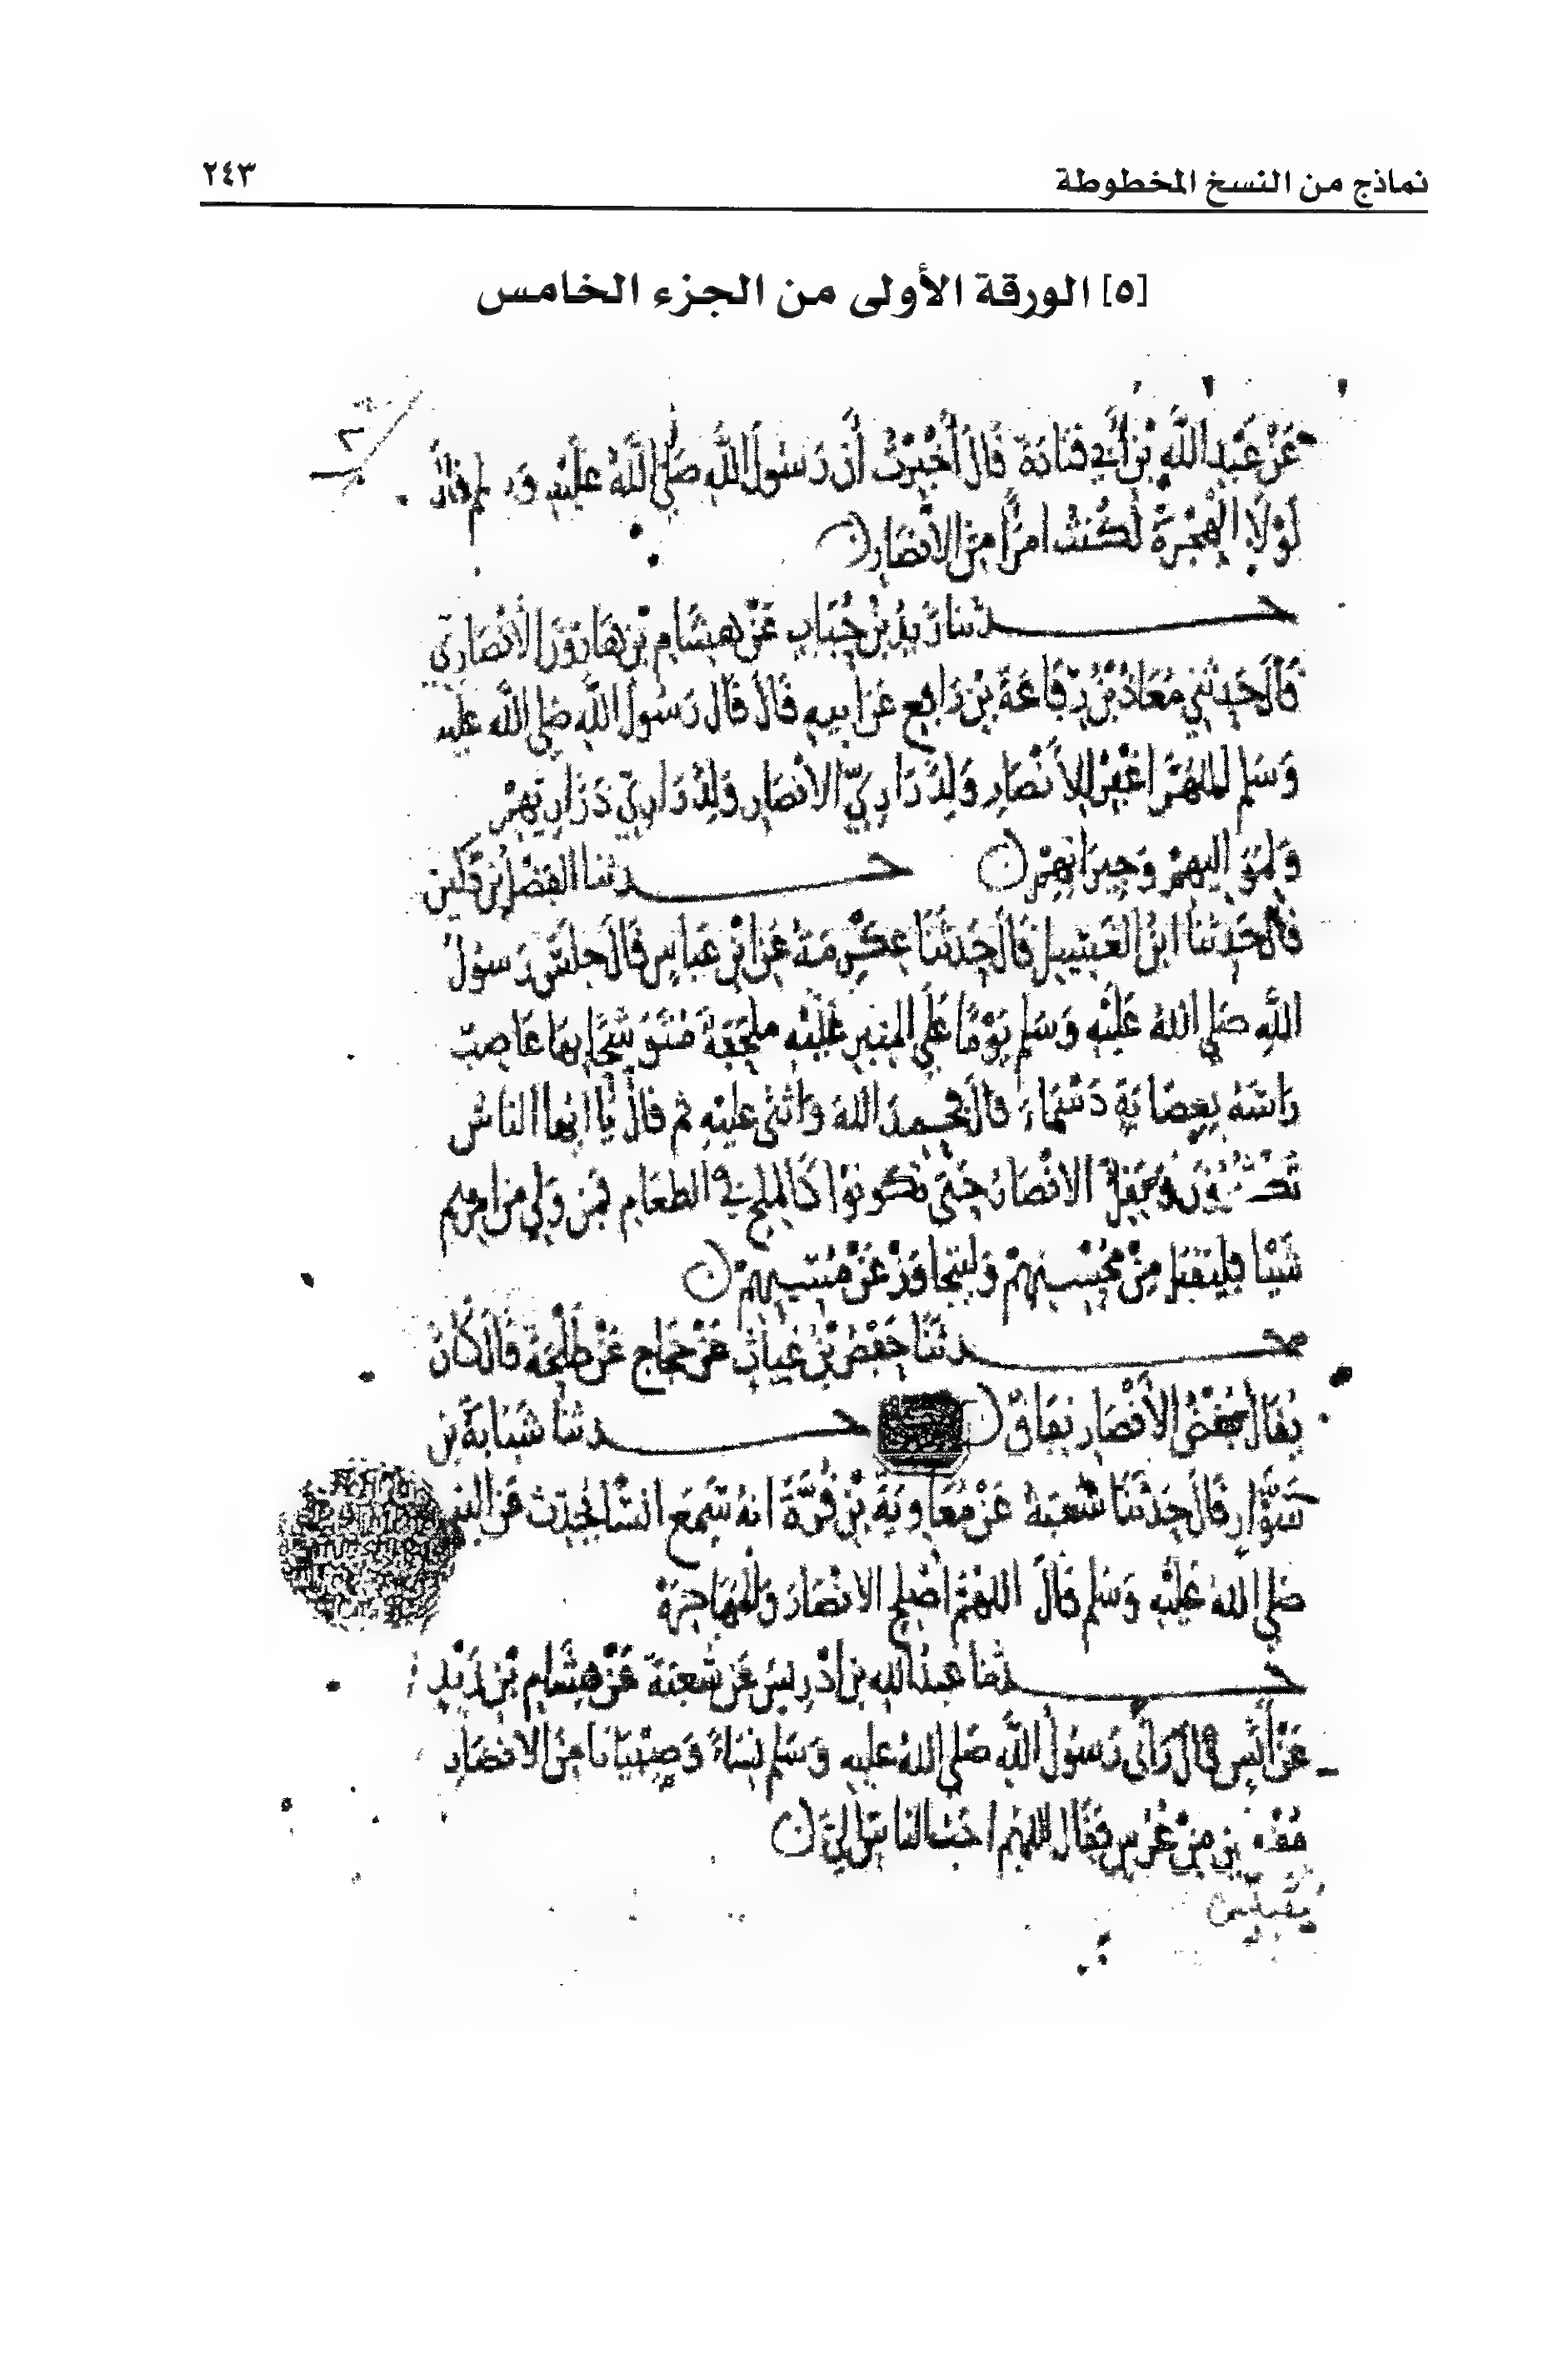 نماذج من النسخ المخطوطة
٢٤٣
[٥] الورقة الأولى من الجزء الخامس
عَنْ عَبْدِ اللَّهِ بْنِ أَبِي قتَادَة قَالَ أُخْبِرْتُ أَن رَسُولَ اللَّهِ صَلَّى اللَّهُ عَلَيْهِ وَسلم قَالَ
لَوْلَا الْهِجْرَةُ لَكُنْتُ امرَأً مِنَ الأَنْصَارِ
حدثنا زَيْدُ بْنُ حُبَابٍ عَنْ هِشَامِ بْنِ هَارُونَ الأَنْصَارِي
قَالَ حَدثَنِي مُعَاذُ بْنُ رِفَاعَةَ بْنِ رَافِعٍ عَنْ ابيهِ قَالَ قَالَ رَسُولُ اللَّهِ صَلى الله عليه
وَسَلم اللهُمَّ اغْفِرْ لِلأَنْصَارِ وَلِذَرَارِيِّ الانْصَارِ وَلِذَرَارِيِّ ذَرَارِيهِمْ
وَلِمَوَاليهِمْ وَجِيرَانِهِمْ حدثنا الفَضْلُ بْنُ دُكَينٍ
قَالَ حَدثنَا ابنُ الغَسِيلِ قَالَ حَدثنَا عِكْرِمَةُ عَنِ ابْنِ عَبَاسٍ قَالَ جلسَ رَسولُ
اللَّهِ صَلى اللهُ عَلَيْهِ وَسَلم يَوْمًا عَلَى المِنبَرِ عَلَيْهِ مِلْحَفَةٌ مُتَوَشِّحًا بِهَا عَاصِبٌ
رَاسَهُ بِعِصَابَةٍ دَسْمَاءَ قالَ فحمدَ اللهَ وَاثنى عليْهِ ثم قالَ يَا ايهَا الناسُ
تَكْثُرُونَ وَيَقِلُّ الانْصَارُ حَتَّى تَكونوا كَالملحِ في الطعَامِ فمَنْ وَلِيَ مِنْ امرِهِم
شَيْئًا فليَقبَل مِنْ مُحْسِنِهِمْ وَليَتَجَاوَزْ عَنْ مُسِيئِهِمْ
حدثنَا حَفْصُ بْنُ غِيَاثٍ عَنْ حَجَاجٍ عَنْ طَلْحَةَ قَالَ كَانَ
يُقَالُ بُغْضُ الأَنْصَارِ نِفَاقٌ حدثنا شَبَابَةُ بن
سَوَّارٍ قَالَ حَدثنَا شُعْبَةُ عَنْ مُعَاوِيَةَ بْنِ قُرَّةَ انهُ سَمِعَ انَسًا يُحَدِّثُ عَنِ النبي
صَلى اللهُ عَلَيْهِ وَسَلم قَالَ اللهُمَّ اصْلِحِ الانْصَارَ وَالْمُهَاجِرَةَ
حدثنا عَبدُ اللهِ بن ادْرِيسَ عَن شُعبَة عَنْ هِشَامِ بْنِ زَيْدٍ
عَنْ أَنَسٍ قَالَ رَأَى رَسُولُ اللَّهِ صَلى اللهُ عليهِ وَسَلم نِسَاءً وَصِبْيَانًا مِنَ الانْصَارِ
مُقْبِلِينَ مِنْ عُرْسٍ فَقَالَ اللهُم احَبُّ الناسِ اليَّ